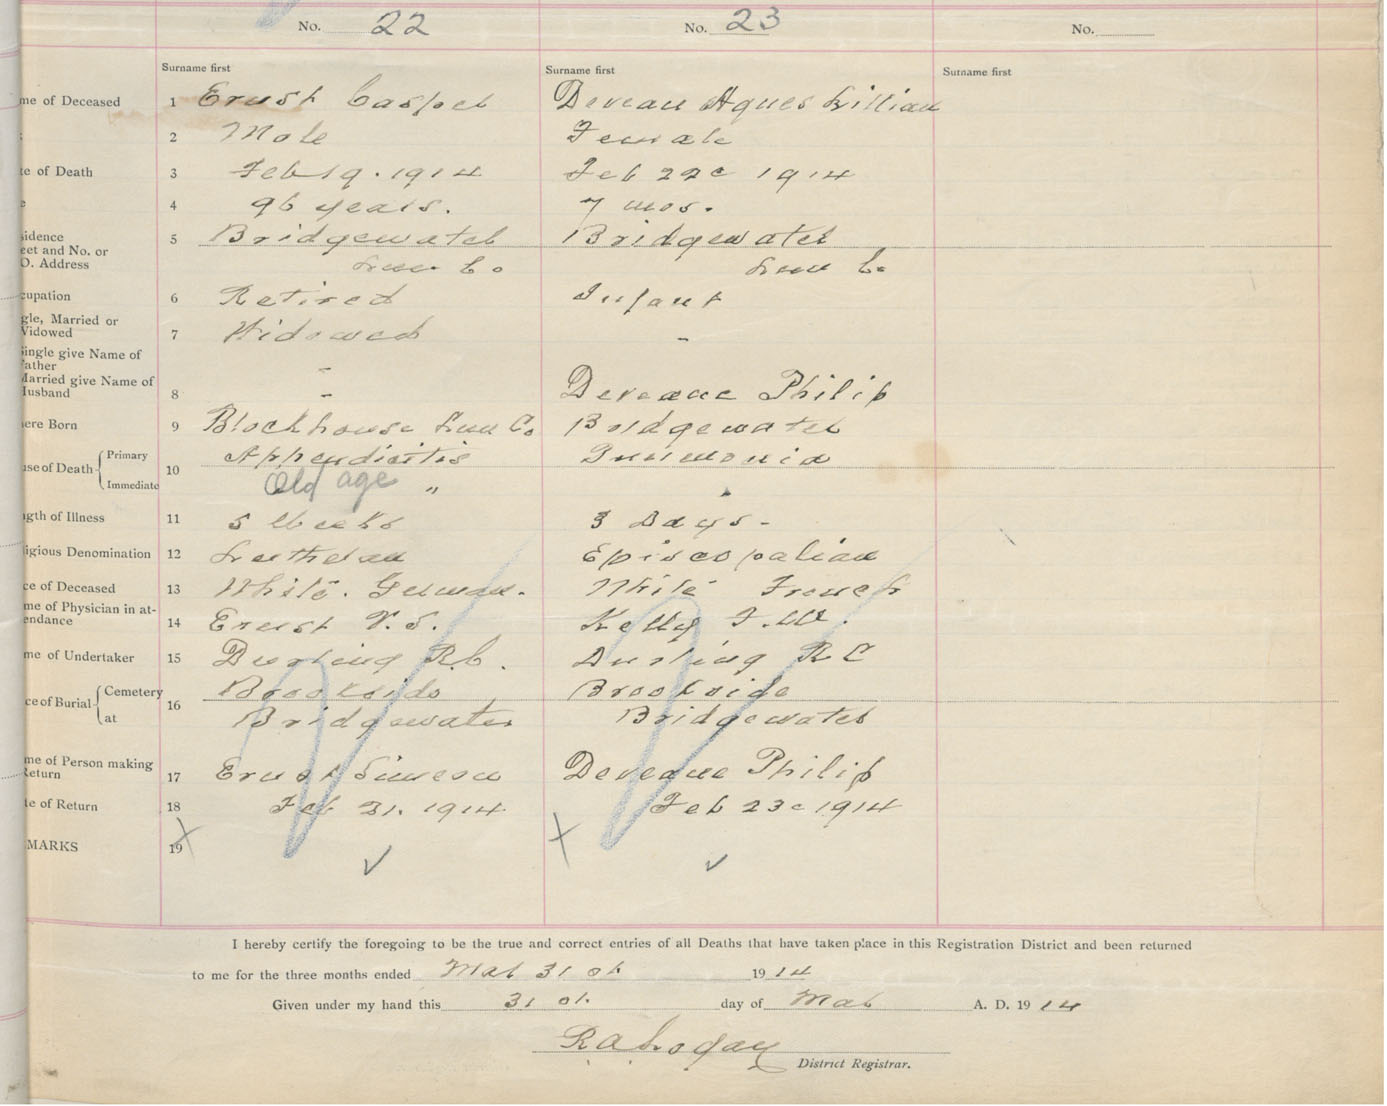 No. 22
No. 23
No.
Surname first
Surname first
Surname first
me of Deceased 1 Ernst Casper Deveau Agnes Lillian
2 Male Female
te of Death 3 Feb 19. 1914 Feb 22d 1914
4 96 years. 7 mos.
idence
eet and No. or 5 Bridgewater Bridgewater
O. Address Lun. Co Lun Co
cupation 6 Retired Infant
gle, Married or
Vidowed 7 Widowed -
Single give Name of
Father -
Married give Name of
Husband 8 - Deveaue Philip
ere Born 9 Blockhouse Lun Co Bridgewater
use of Death Primary 10 Appendicitis Pnumonia
Immediate Old age "
ngth of Illness 11 5 Weeks 3 Days-
igious Denomination 12 Lutheran Episcopalian
ce of Deceased 13 White. German. White French
me of Physician in at-
endance 14 Ernst V. S. Kelly F. W.
me of Undertaker 15 Durling R.C. Durling R C
ce of Burial Cemetery 16 Brookside Brookside
at Bridgewater Bridgewater
me of Person making
Return 17 Ernst Simeon Deveaue Philip
te of Return 18 Feb 21. 1914 Feb 23d 1914
MARKS 19
I hereby certify the foregoing to be the true and correct entries of all Deaths that have taken place in this Registration District and been returned
to me for the three months ended Mar 31 st 1914
Given under my hand this 31 st. day of Mar A. D. 1914
R A Logan
District Registrar.